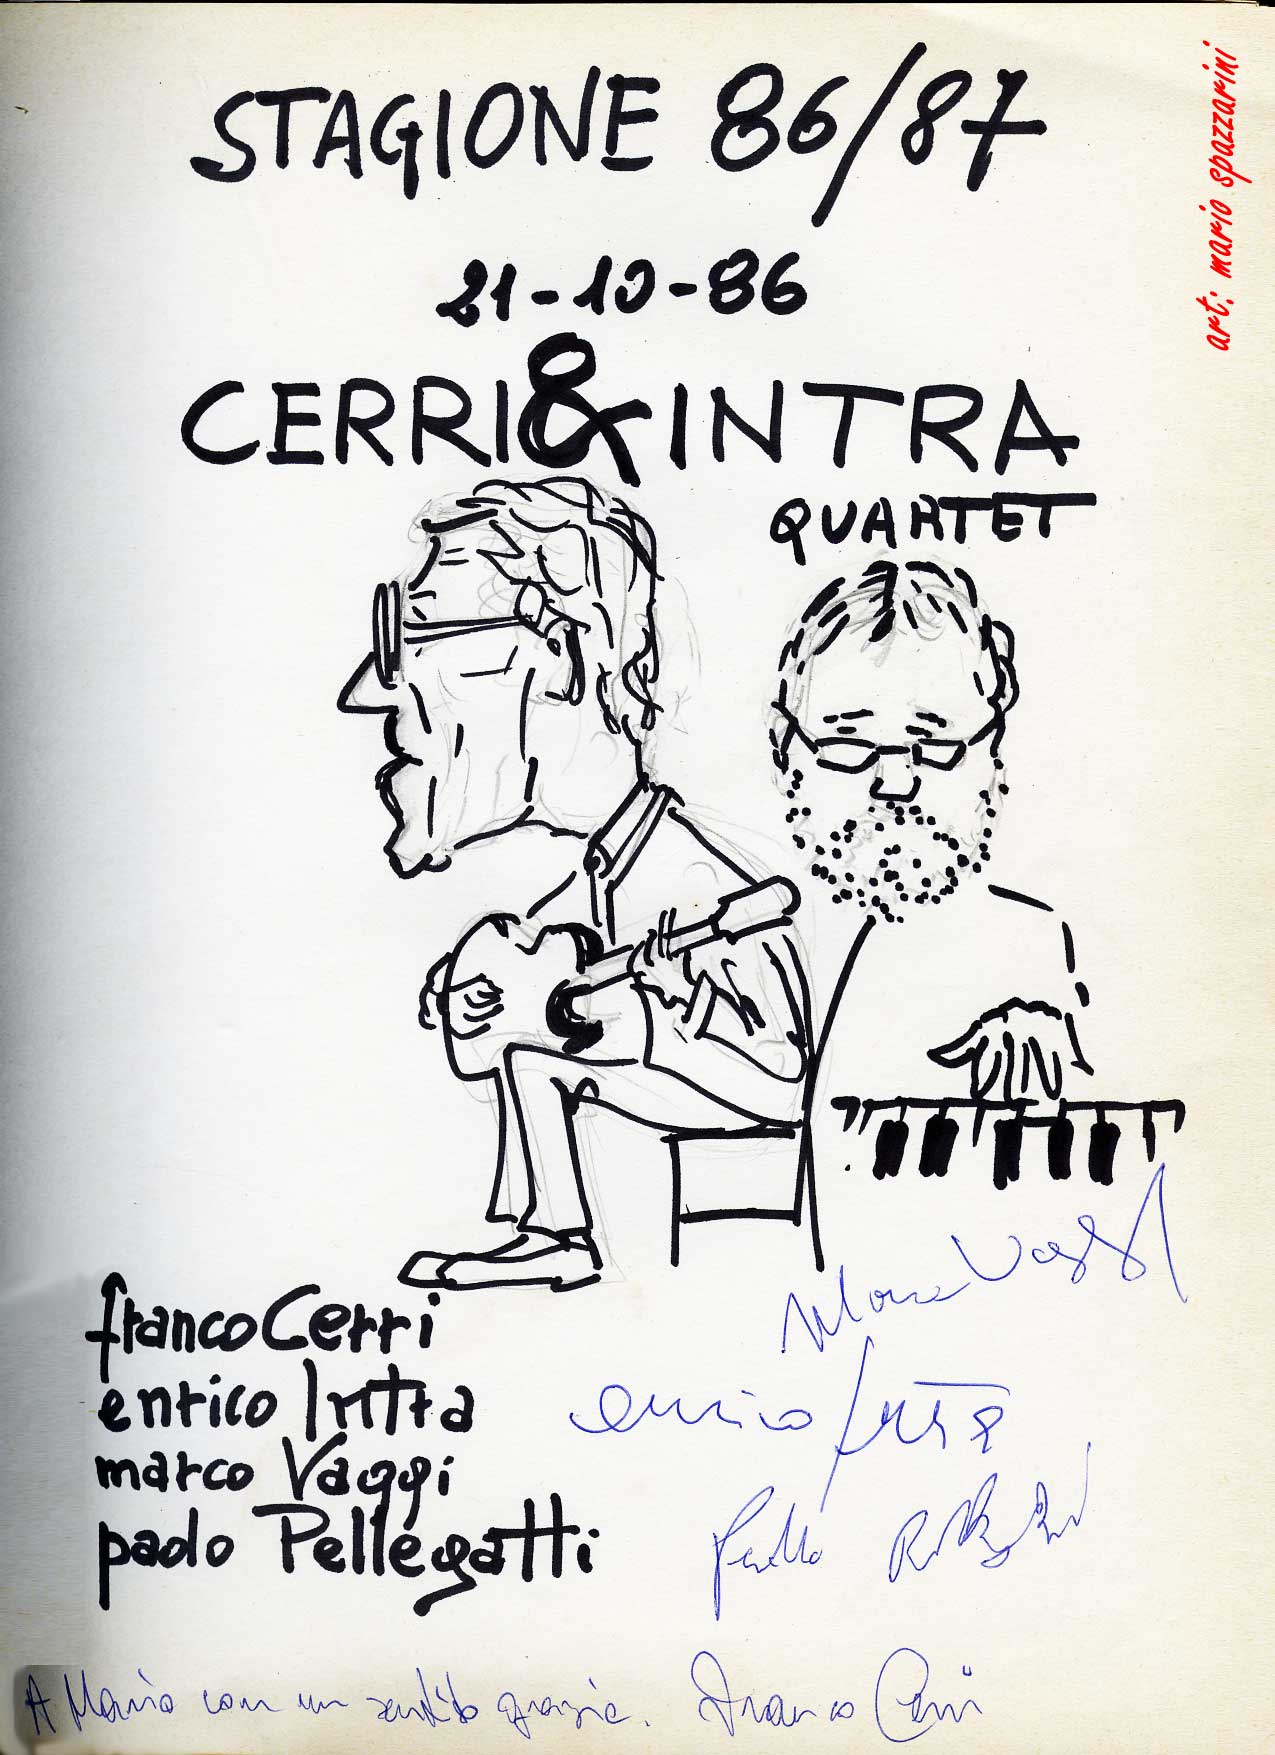 STAGIONE 86/87
art: mario spazzarini
21-10-86
CERRI & INTRA
QUARTET
franco Cerri
enrico Intra
marco Vaggi
paolo Pellegatti
Marco Vaggi
enrico Intra
A Mario con un sentito grazie. Franco Cerri